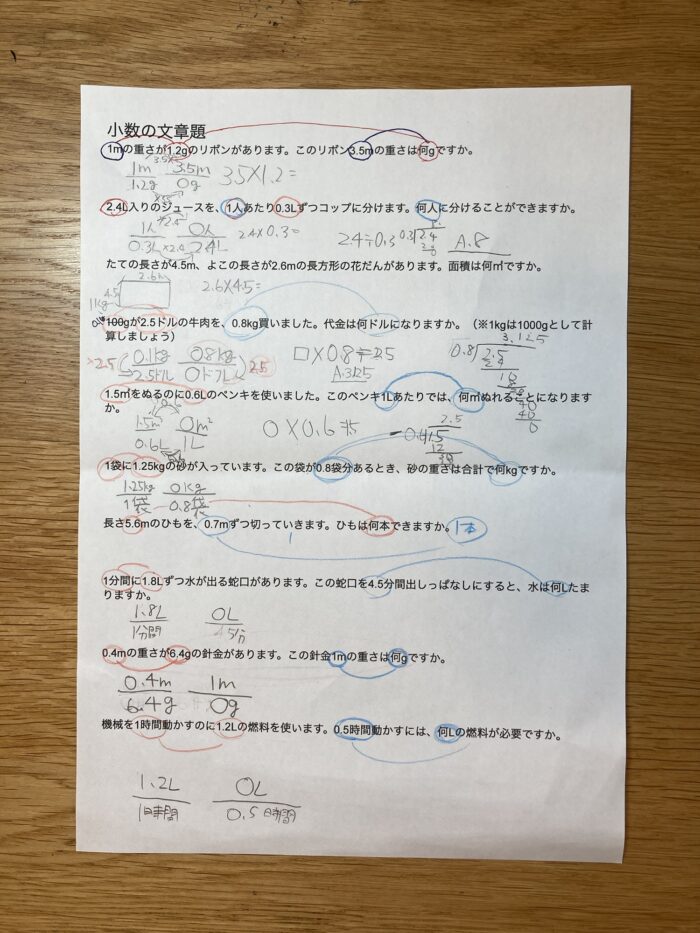 小数の文章題
1mの重さが1.2gのリボンがあります。このリボン3.5mの重さは何gですか。
1m 3.5m 3.5×1.2=
1.2g 0g
2.4L入りのジュースを、1人あたり0.3Lずつコップに分けます。何人に分けることができますか。
1人 0人 2.4×0.3= 2.4÷0.3 A.8
0.3L ×2.4 2.4L
たての長さが4.5m、よこの長さが2.6mの長方形の花だんがあります。面積は何㎡ですか。
2.6m
4.5 2.6×4.5=
1kg
100gが2.5ドルの牛肉を、0.8kg買いました。代金は何ドルになりますか。（※1kgは1000gとして計
算しましょう）
3.125
0.8
0.1kg 0.8kg □×0.8=2.5
2.5ドル 0ドル 2.5 A.3.125
1.5㎡をぬるのに0.6Lのペンキを使いました。このペンキ1Lあたりでは、何㎡ぬれることになります
か。
1.5m² 0m² 0×0.6 2.5
0.6L 1L 12
30
1袋に1.25kgの砂が入っています。この袋が0.8袋分あるとき、砂の重さは合計で何kgですか。
1.25kg 0kg
1袋 0.8袋
長さ5.6mのひもを、0.7mずつ切っていきます。ひもは何本できますか。 1本
1分間に1.8Lずつ水が出る蛇口があります。この蛇口を4.5分間出しっぱなしにすると、水は何Lたま
りますか。
1.8L 0L
1分間 4.5分
0.4mの重さが6.4gの針金があります。この針金1mの重さは何gですか。
0.4m 1m
6.4g 0g
機械を1時間動かすのに1.2Lの燃料を使います。0.5時間動かすには、何Lの燃料が必要ですか。
1.2L 0L
1時間 0.5時間